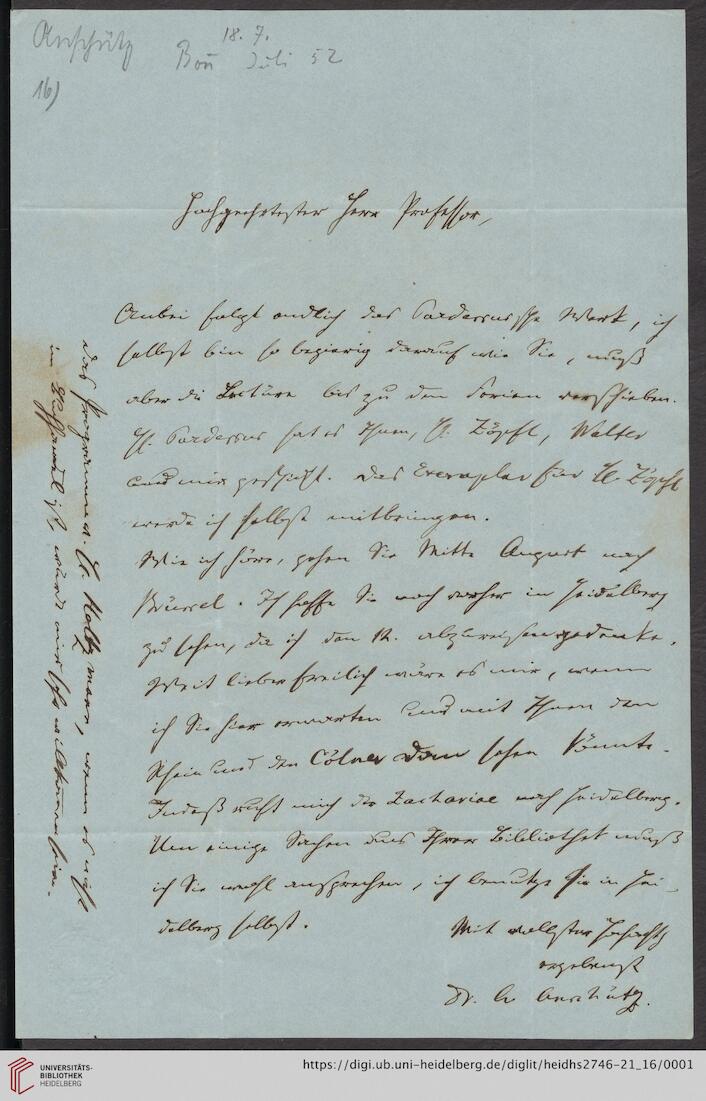 Anschütz
18. 7.
Bonn Juli 52
16)
Hochgeehrtester Herr Professor,
Anbei folgt endlich das Pardessus'sche Werk, ich
selbst bin so begierig darauf wie Sie, muß
aber die Lectüre bis zu den Ferien verschieben.
H. Pardessus hat es Ihnen, H. Zöpfl, Walter
und mir geschickt. Das Exemplar für H. Zöpfl
werde ich selbst mitbringen.
Wie ich höre, gehen Sie Mitte August nach
Brüssel. Ich hoffe Sie noch vorher in Heidelberg
zu sehen, da ich den 12. abzureisen gedenke.
Weit lieber freilich wäre es mir, wenn
ich Sie hier erwarten und mit Ihnen den
Rhein und den Cölner Dom sehen könnte.
Indeß ruft mich der Zachariae nach Heidelberg.
Um einige Sachen aus Ihrer Bibliothek muß
ich Sie wohl ansprechen, ich benutze sie in Hei-
delberg selbst.
Mit vollster Hochachtg
ergebenst
Dr. Anschütz.
Das Programm v. H. Molitz, wenn es nicht
im Buchhandel ist, würde mir sehr willkommen sein.
UNIVERSITÄTS-
BIBLIOTHEK
HEIDELBERG
https://digi.ub.uni-heidelberg.de/diglit/heidhs2746-21_16/0001